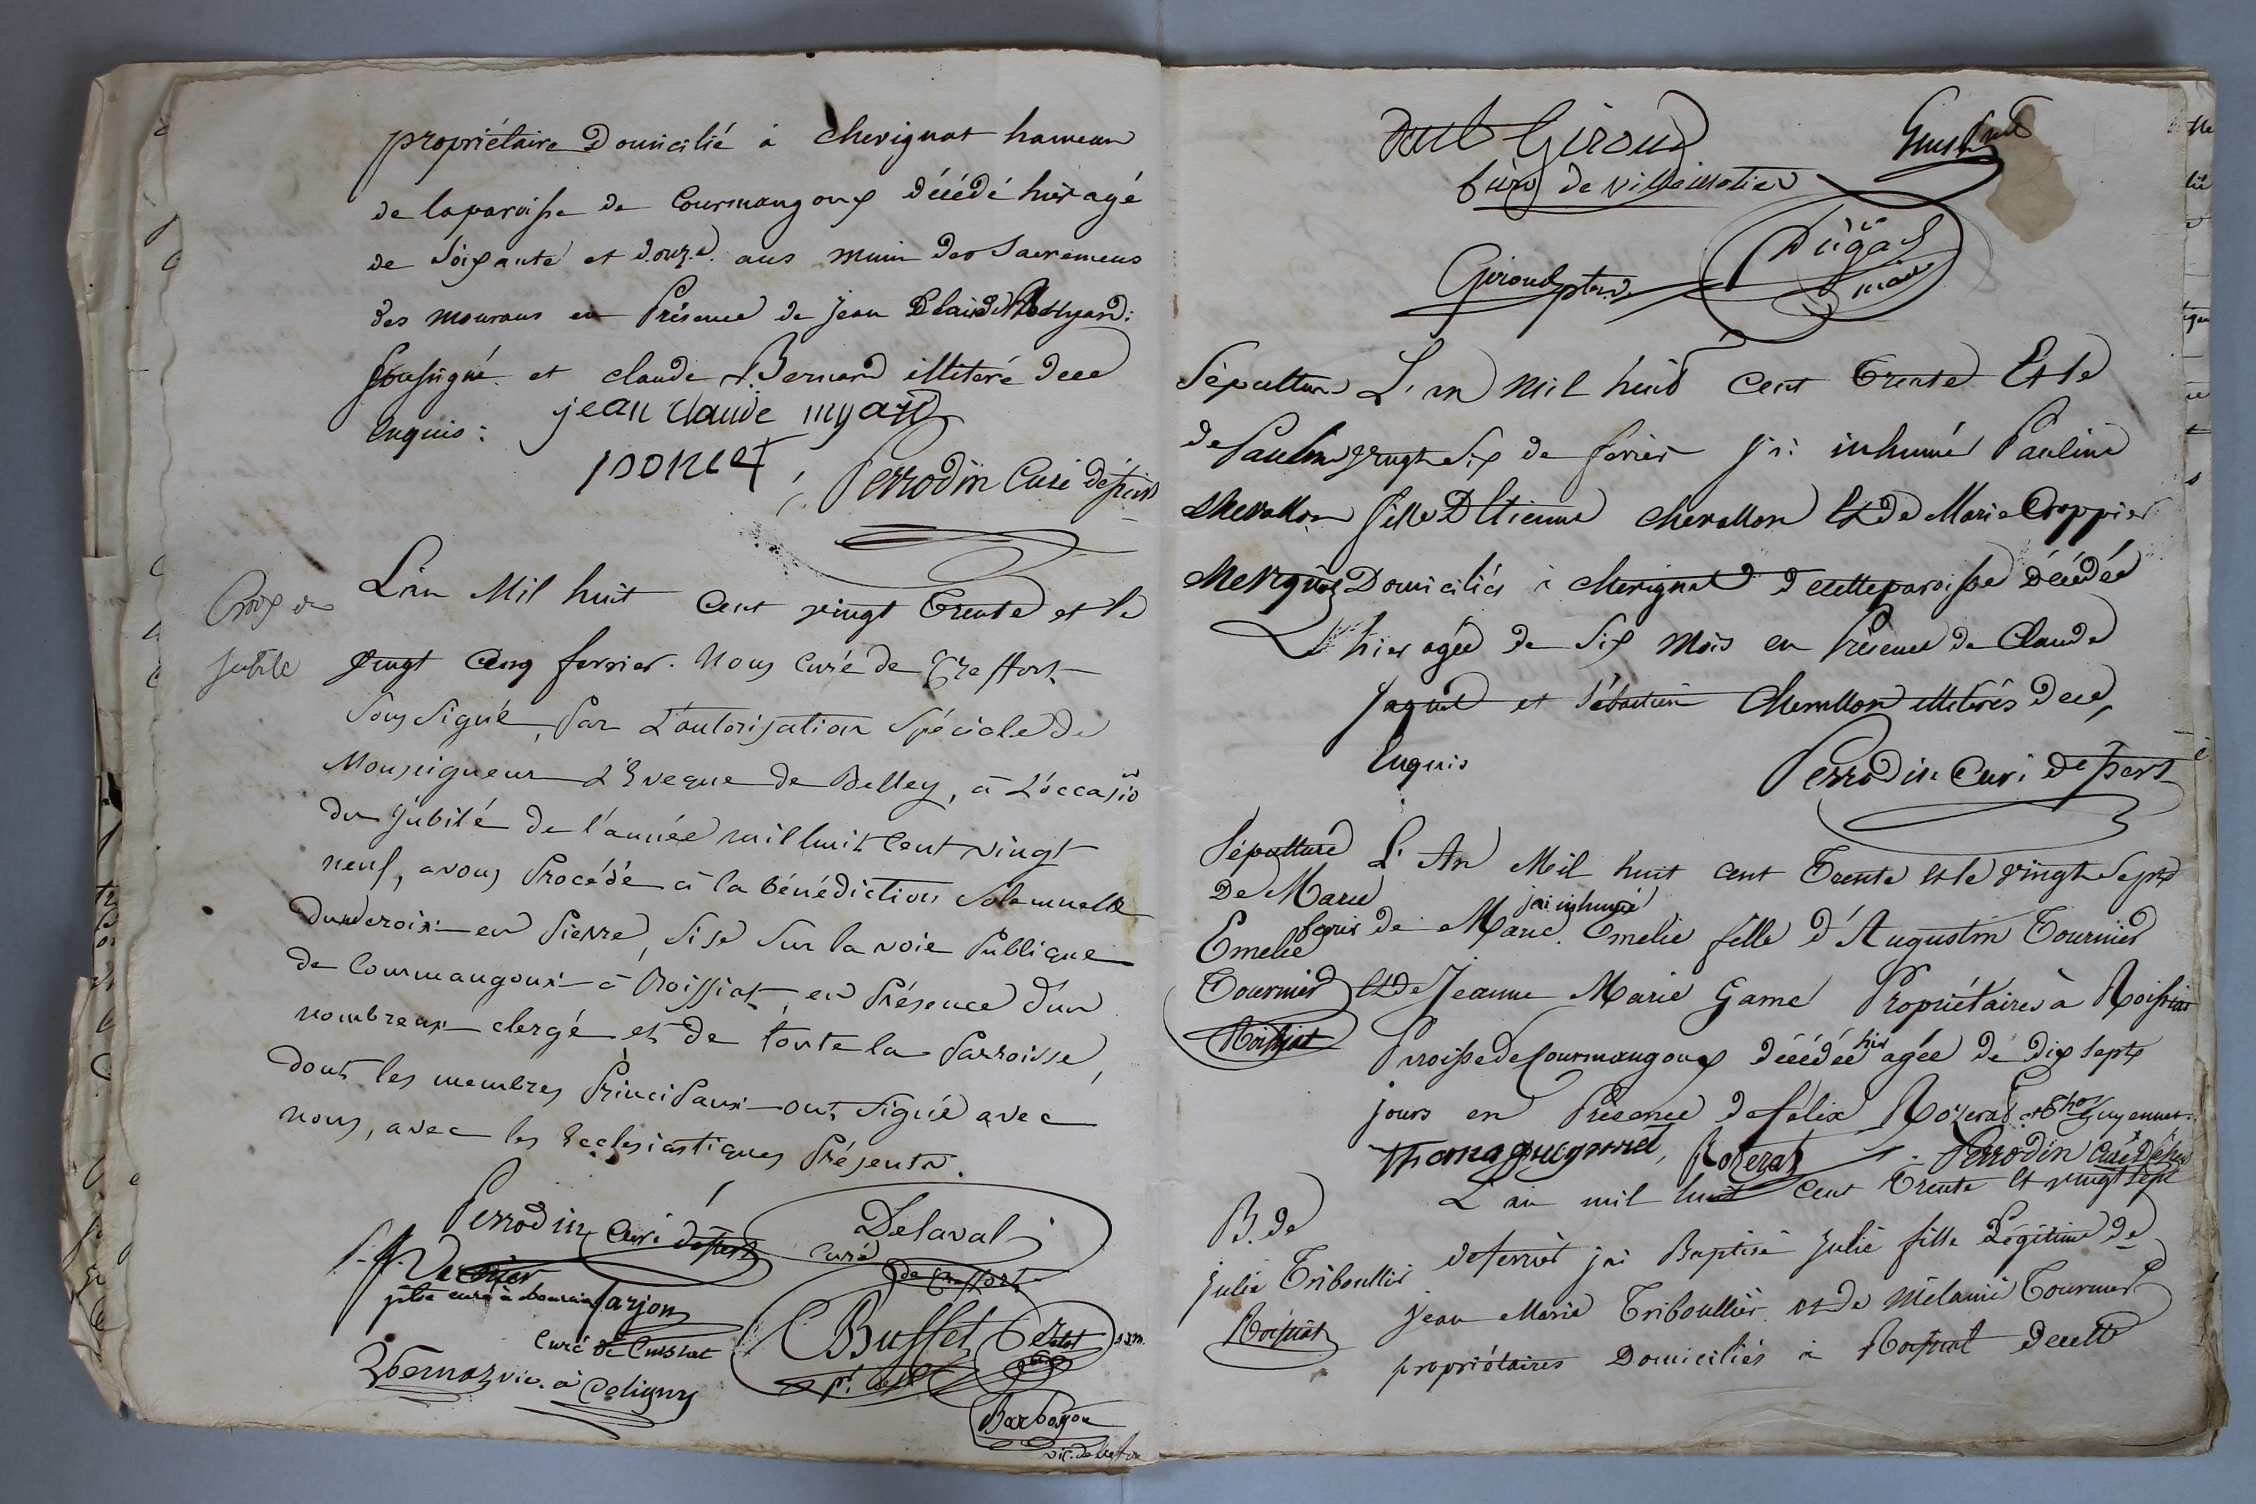 propriétaire Domicilié à chevignat hameau
de laparoisse de Courmangoux décédé hier agé
de soixante et douze ans muni des Sacremens
des mourans en Présence de jean Claude Myard:
soussigné et claude Bernard illiteré dece
Enquis: jean claude myard
poncet
Perrodin Curé desservt
Croix du
Jubilé
L'an Mil huit Cent vingt Trente et le
vingt Cinq fevrier. Nous Curé de Treffort
Soussigné, Par L'autorisation Spéciale de
Monseigneur L'Eveque de Belley, à L'occasio
du Jubilé de l'année mil huit Cent vingt
neuf, avons Procédé à la bénédiction Solemnelle
d'une croix en Pierre, Sise Sur la voie Publique
de Courmangoux à Roissiat, en Présence d'un
nombreux clergé et de toute la Parroisse,
dont les membres Principaux ont Signé avec
nous, avec les Ecclesiastiques Présents.
Perrodin Curé desservt
Delaval
Curé
de treffort
ptre curé à
Sarjon
Curé de Cuisiat
C Buffet
Bernaz vic. à Coligny
Barbazon
vic. de treffort
Giroud
Curé de villemotier
Giroud
Dugas
maire
Sépulture L'an Mil huit Cent Trente Et le
de Pauline vingt Six de fevrier j'ai inhumé Pauline
chevallon fille D'Etienne chevallon Et de Marie Croppier
chevignat Domiciliés à chevignat de cette paroisse Décédée
hier agée de Six Mois en Présence de Claude
jaquet et Sébastien Chevallon illiterés dece,
Enquis
Perrodin Curé desservt
Sépulture L'An Mil huit cent Trente et le vingt Sept
De Marie
j'ai inhumé
fevrier de Marie Emelie fille d'Augustin Tournier
Emelie
Tournier Et de Jeanne Marie Game Propriétaires à Roissiat
Roissiat Paroisse de Courmangoux Décédée hier agée de Dix Sept
jours en Présence de félix Rozerat et Thos Guyennet
Thomas guyennet, Rozerat Perrodin Curé Desser
B. de
L'an mil huit Cent Trente et vingt Sept
Julie Triboullier
de fevrier j'ai Baptisé Julie fille Légitime de
jean Marie Triboullier et de Mélanie Tournier
Roissiat
propriétaires Domiciliés à Roissiat de cette